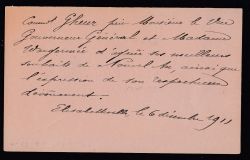 Comont Gheur prie Monsieur le Vice
Gouverneur Général et Madame
Wangermée d'agréer ses meilleurs
souhaits de Nouvel An, ainsi que
l'expression de son respectueux
dévouement.
Elisabethville, le 6 décembre 1911